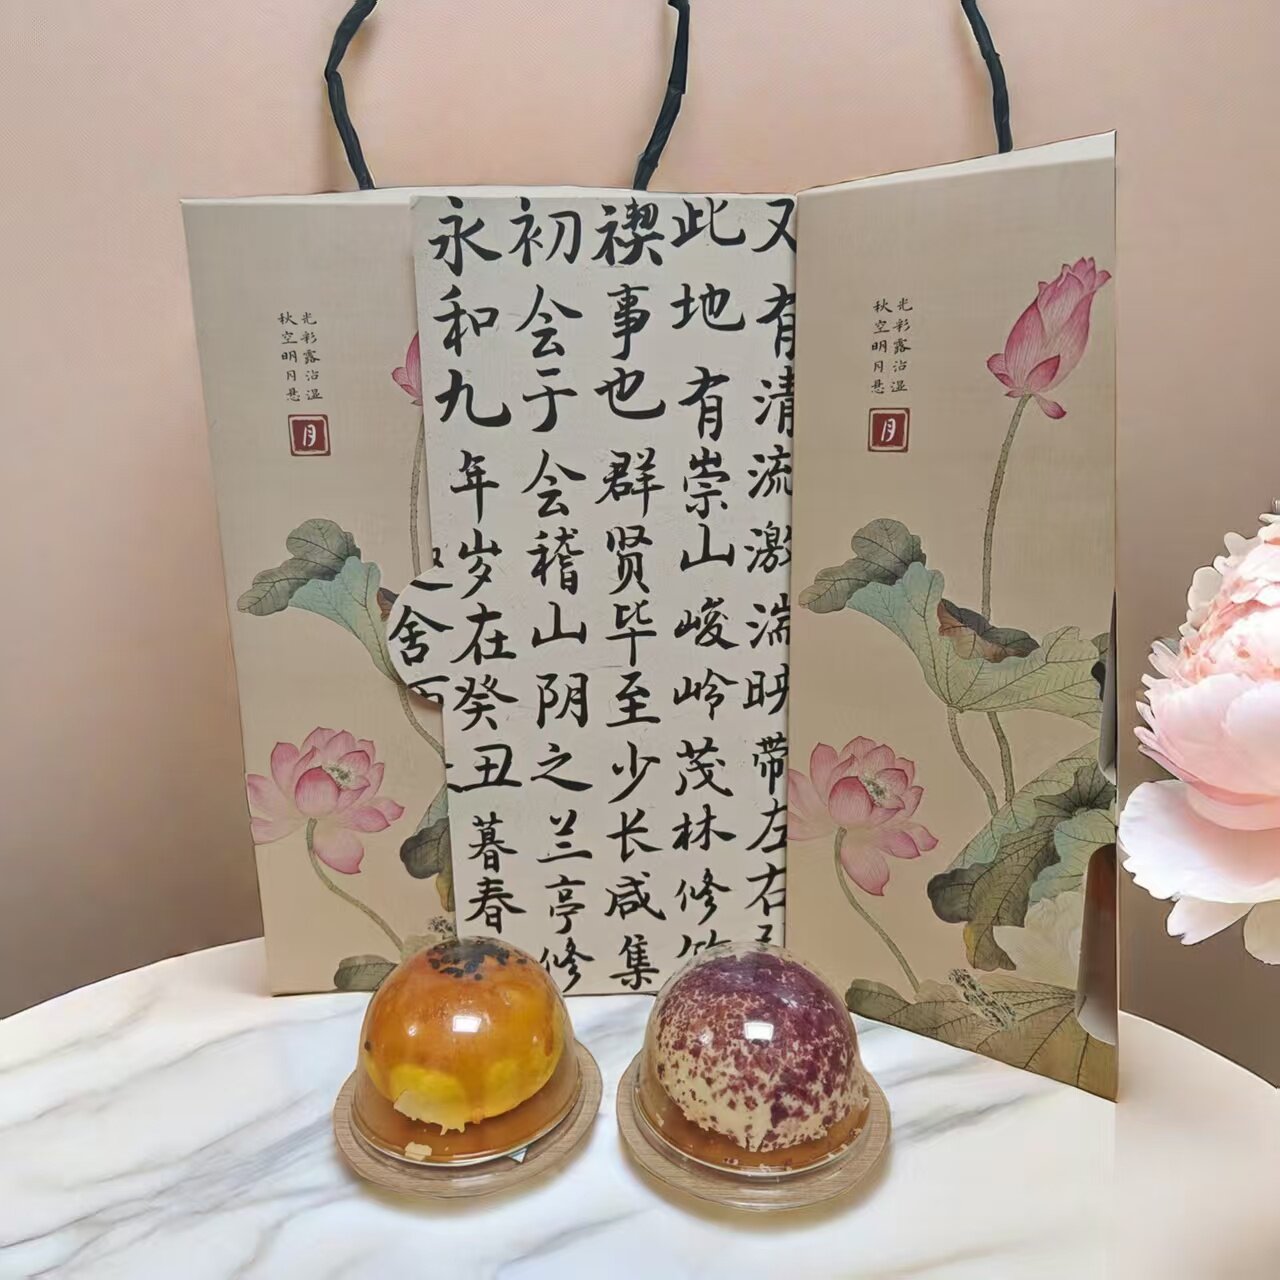 秋空明月悬
光彩露沾湿
月
舍
永和九年岁在癸丑暮春
初会于会稽山阴之兰亭修
禊事也群贤毕至少长咸集
此地有崇山峻岭茂林修
又有清流激湍映带左右
秋空明月悬
光彩露沾湿
月